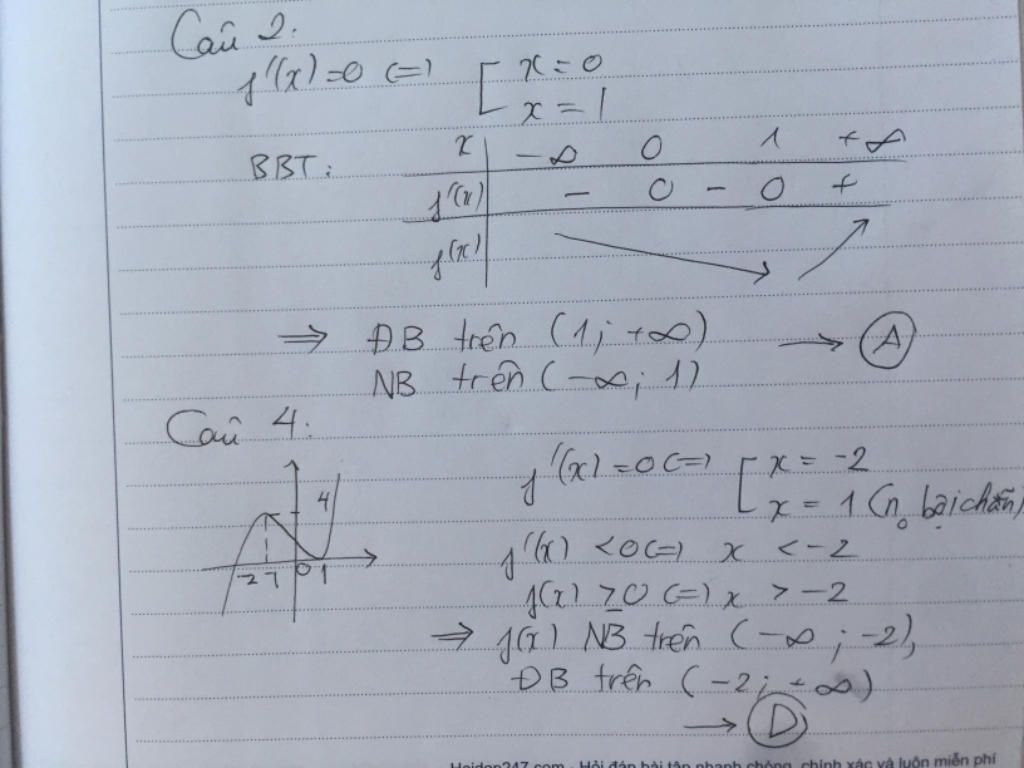 Câu 2:
f'(x)=0 (=) [ x = 0
x = 1
BBT: x | -∞ 0 1 +∞
f'(x) | - 0 - 0 +
f(x)
⇒ ĐB trên (1; +∞) → A
NB trên (-∞; 1)
Câu 4:
f'(x) = 0 (=) [ x = -2
x = 1 (n. bội chẵn)
4
-2 -1 0 1
f'(x) <0 (=) x < -2
f(x) ≥0 (=) x > -2
⇒ f(x) NB trên (-∞; -2),
ĐB trên (-2; +∞)
→ D
Hoidap247.com - Hỏi đáp bài tập nhanh chóng, chính xác và luôn miễn phí